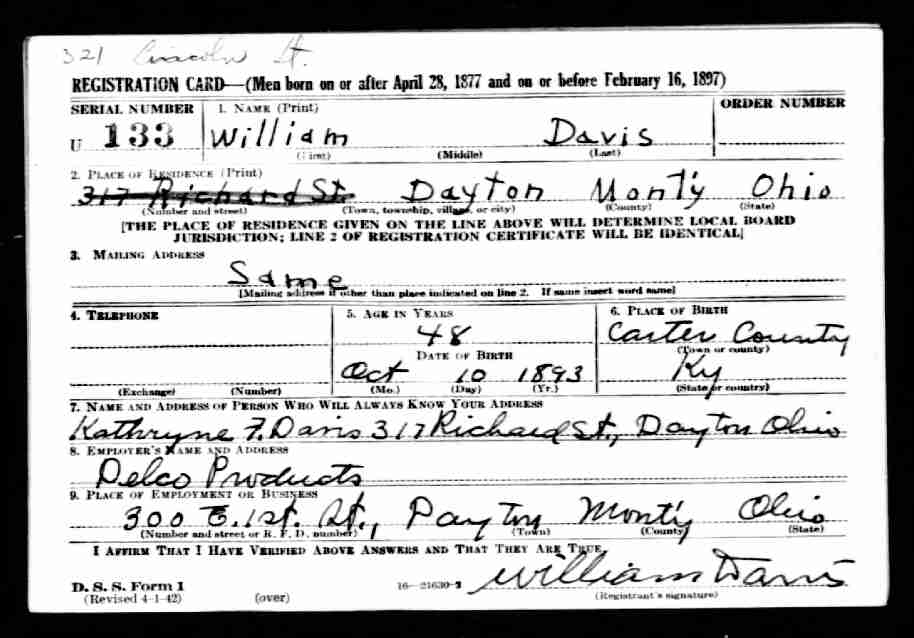 321 Lincoln St.
REGISTRATION CARD—(Men born on or after April 28, 1877 and on or before February 16, 1897)
SERIAL NUMBER 1. NAME (Print) ORDER NUMBER
U 133 William Davis
(First) (Middle) (Last)
2. PLACE OF RESIDENCE (Print)
317 Richard St. Dayton Mont'y Ohio
(Number and street) (Town, township, village, or city) (County) (State)
[THE PLACE OF RESIDENCE GIVEN ON THE LINE ABOVE WILL DETERMINE LOCAL BOARD
JURISDICTION; LINE 2 OF REGISTRATION CERTIFICATE WILL BE IDENTICAL]
3. MAILING ADDRESS
Same
[Mailing address if other than place indicated on line 2. If same insert word same]
4. TELEPHONE 5. AGE IN YEARS 6. PLACE OF BIRTH
48 Carter County
(Town or county)
DATE OF BIRTH
Oct 10 1893 Ky
(Exchange) (Number) (Mo.) (Day) (Yr.) (State or country)
7. NAME AND ADDRESS OF PERSON WHO WILL ALWAYS KNOW YOUR ADDRESS
Kathryne F. Davis 317 Richard St., Dayton Ohio
8. EMPLOYER'S NAME AND ADDRESS
Delco Products
9. PLACE OF EMPLOYMENT OR BUSINESS
300 E. 1st. St., Dayton Mont'y Ohio
(Number and street or R. F. D. number) (Town) (County) (State)
I AFFIRM THAT I HAVE VERIFIED ABOVE ANSWERS AND THAT THEY ARE TRUE.
William Davis
D. S. S. Form 1 16—21630-2
(Revised 4-1-42) (over) (Registrant's signature)